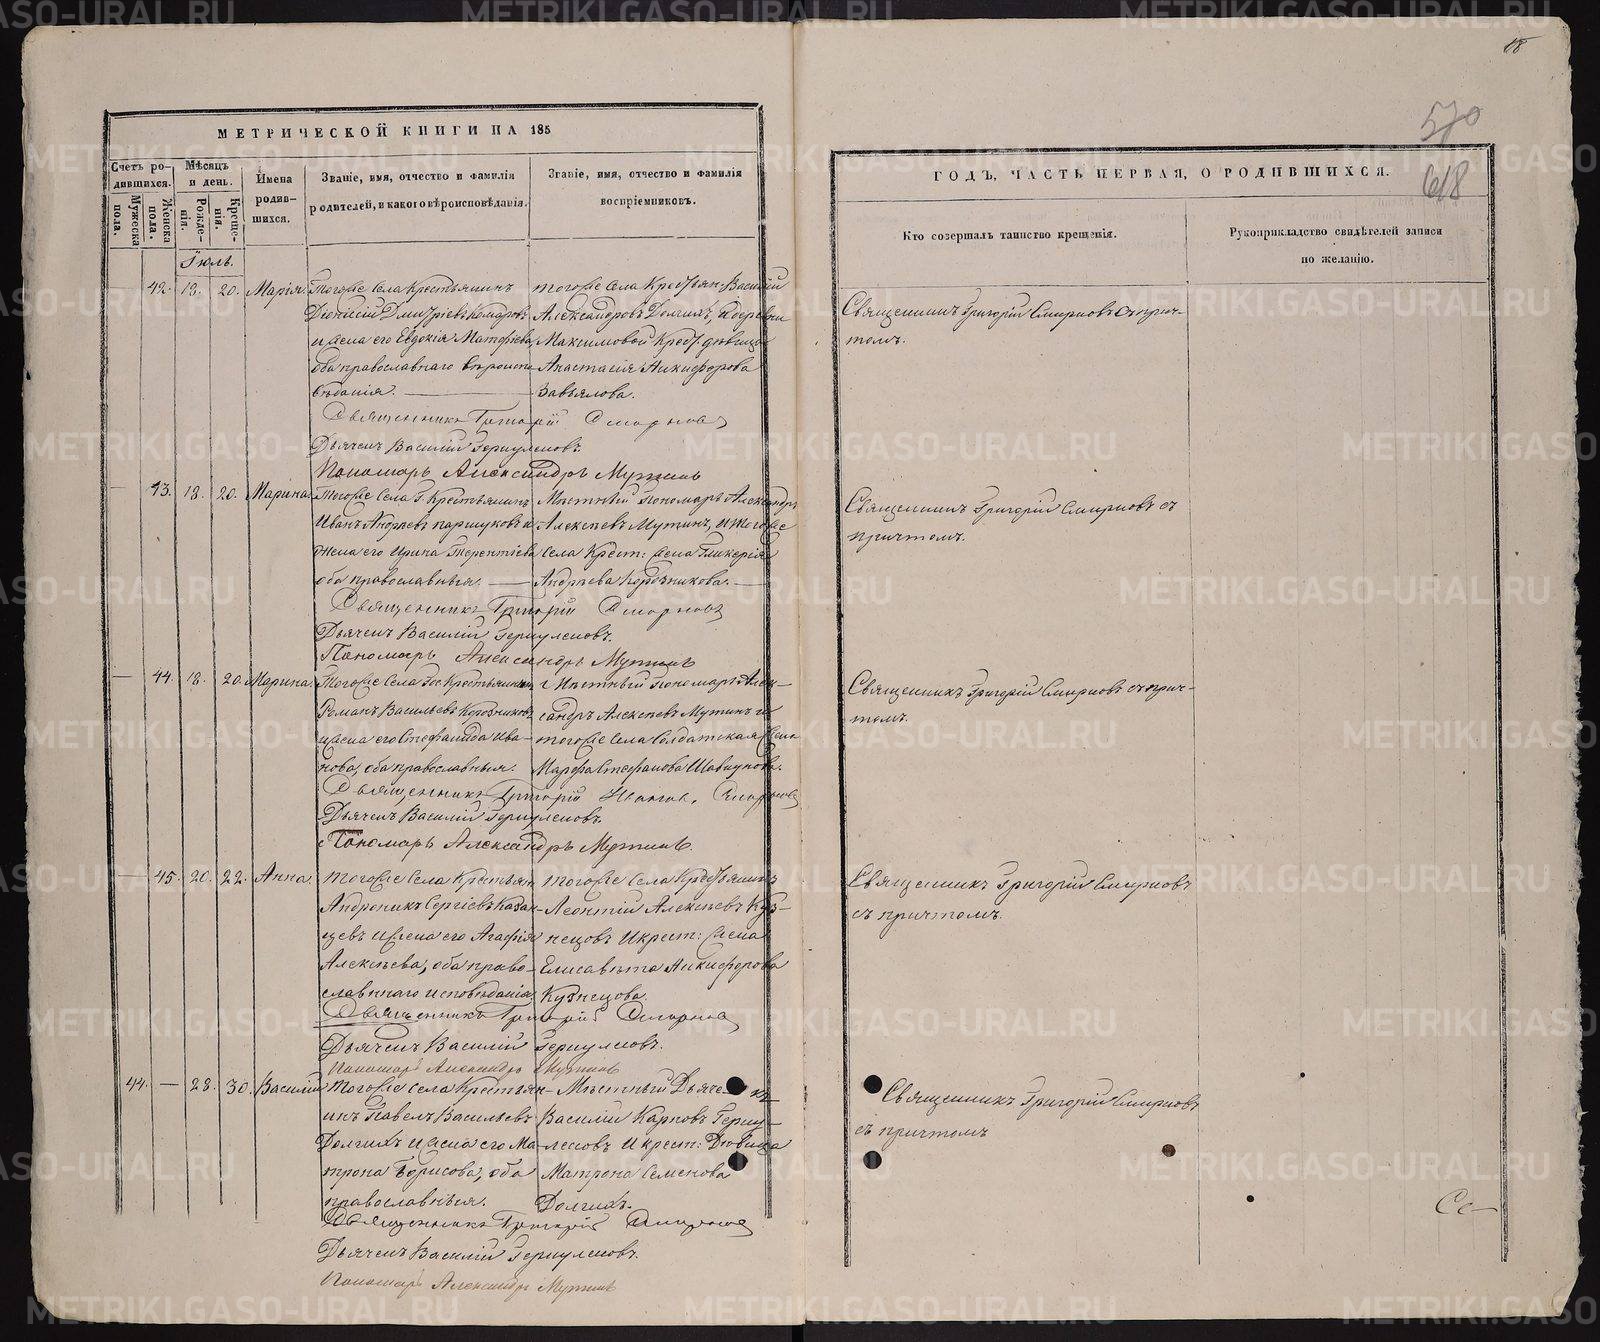 МЕТРИЧЕСКОЙ КНИГИ НА 185
Счетъ ро-
дившихся.
Мужеска
пола.
Женска
пола.
Мѣсяцъ
и день.
Рожде-
нія.
Креще-
нія.
Имена
родив-
шихся.
Званіе, имя, отчество и фамилія
родителей, и какого вѣроисповѣданія.
Званіе, имя, отчество и фамилія
воспріемниковъ.
Іюль.
42. 18. 20. Марія.
Тогоже села Крестьянинъ
Діонисій Дмитріевъ Комаровъ
и жена его Евдокія Матфѣева
оба православнаго вѣроиспо-
вѣданія.
тогоже села Крестьян: Василій
Александровъ Долгихъ, и деревни
Максимовой Крест. дѣвица
Анастасія Никифорова
Завьялова.
Священникъ Григорій Смирновъ
Дьячекъ Василій Геркулесовъ.
Пономарь Александръ Мутинъ
43. 18. 20. Марина.
Тогоже села Г. Крестьянинъ
Иванъ Андреевъ Паршуковъ и
жена его Ирина Терентіева
оба православныя.
Мѣстный пономарь Александръ
Алексѣевъ Мутинъ, и тогоже
села Крест: жена Гликерія
Андреева Коровникова.
Священникъ Григорій Смирновъ
Дьячекъ Василій Геркулесовъ.
Пономарь Александръ Мутинъ
44. 18. 20. Марина.
Тогоже села Гос. Крестьянинъ
Романъ Васильевъ Коровниковъ
и жена его Стефанида Ива-
нова, оба православныя.
Мѣстный пономарь Алек-
сандръ Алексѣевъ Мутинъ и
тогоже села Солдатская жена
Марфа Стефанова
Священникъ Григорій Смирновъ
Дьячекъ Василій Геркулесовъ.
Пономарь Александръ Мутинъ.
45. 20. 22. Анна.
тогоже села Крестьян:
Андроникъ Сергіевъ Казан-
цевъ и жена его Агафія
Алексѣева, оба право-
славнаго исповѣданія
тогоже села Крестьянинъ
Леонтій Алексѣевъ Куз-
нецовъ и крест: жена
Елисавета Никифорова
Кузнецова.
Священникъ Григорій Смирновъ
Дьячекъ Василій Геркулесовъ.
Пономарь Александръ Мутинъ
44. 28. 30. Василій
тогоже села Крестьян-
инъ Павелъ Васильевъ
Долгихъ и жена его Ма-
трона Борисова, оба
православныя.
Мѣстный Дьячекъ
Василій Карповъ Герку-
лесовъ и крест: Дѣвица
Матрона Семенова
Долгихъ.
Священникъ Григорій Смирновъ
Дьячекъ Василій Геркулесовъ.
Пономарь Александръ Мутинъ
18
570
618
ГОДЪ, ЧАСТЬ ПЕРВАЯ, О РОДИВШИХСЯ.
Кто совершалъ таинство крещенія.
Рукоприкладство свидѣтелей записи
по желанію.
Священникъ Григорій Смирновъ съ прич-
томъ.
Священникъ Григорій Смирновъ съ
причтомъ.
Священникъ Григорій Смирновъ съ прич-
томъ.
Священникъ Григорій Смирновъ
съ причтомъ.
Священникъ Григорій Смирновъ
съ причтомъ
Се-
METRIKI.GASO-URAL.RU